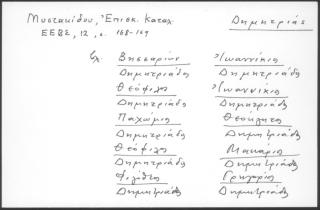 Μυστακίδου, Ἐπισκ. Καταλ. Δημητριάς
ΕΕΒΣ, 12, σ. 168-169
Βησσαρίων
Δημητριάδος
Θεόφιλος
Δημητριάδος
Παχώμιος
Δημητριάδος
Θεόφιλος
Δημητριάδος
Φιλόθεος
Δημητριάδος
Ἰωαννίκιος
Δημητριάδος
Ἰωαννίκιος
Δημητριάδος
Θεόκλητος
Δημητριάδος
Μακάριος
Δημητριάδος
Γρηγόριος
Δημητριάδος